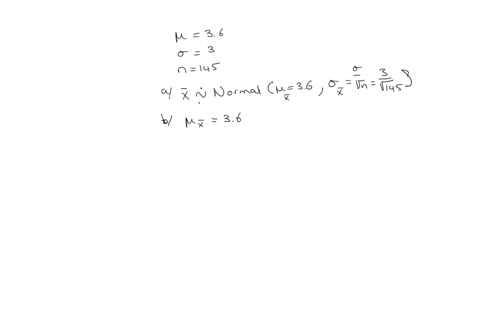 μ = 3.6
σ = 3
n = 145
a) x̄ ∼̇ Normal (μ_x̄ = 3.6, σ_x̄ = σ/√n = 3/√145)
b) μ_x̄ = 3.6